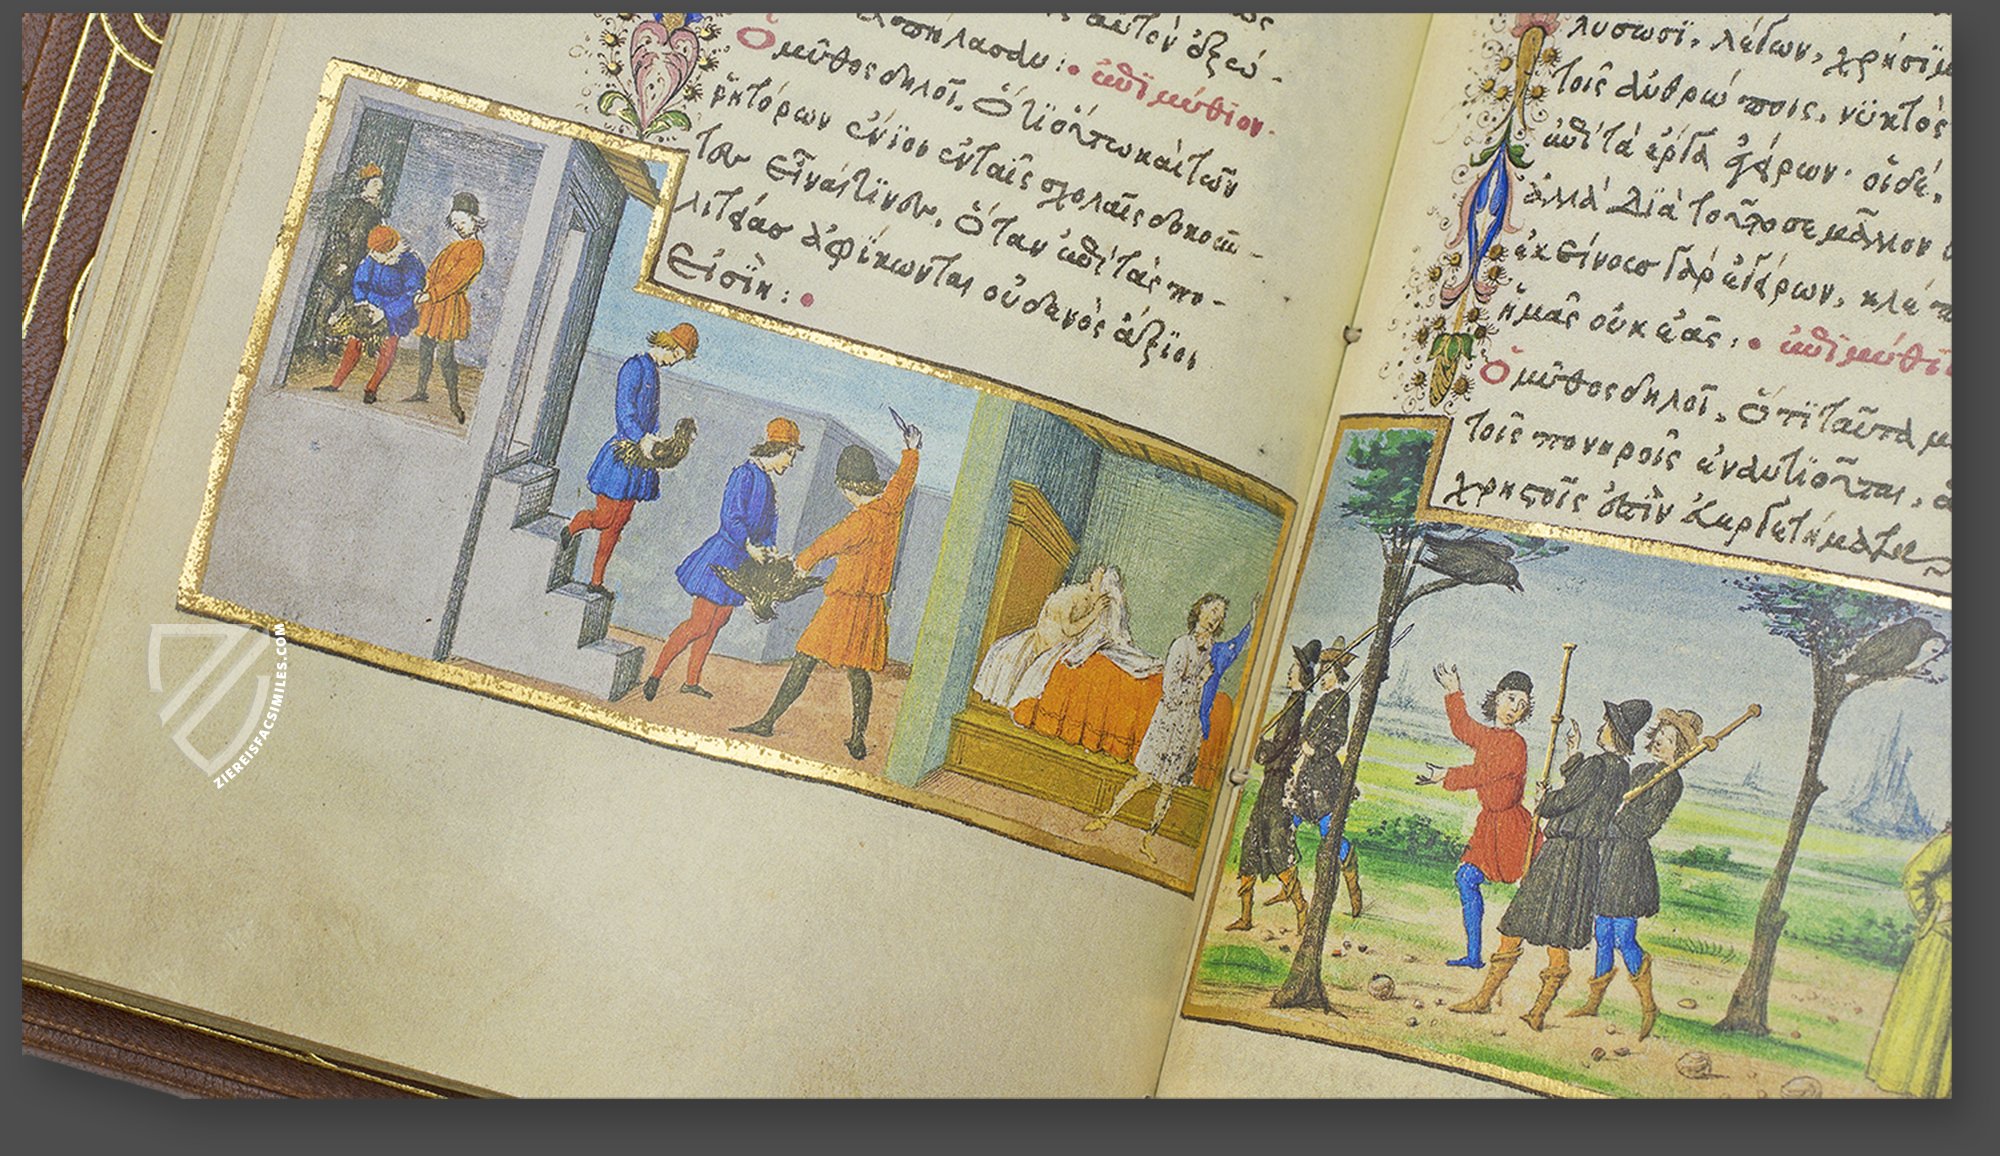 αὐτὸν ὀξέω-
ἀπήλασαν :· ἐπιμύθιον·
Ὁ μῦθος δηλοῖ. Ὅτι οὕτω καὶ τῶν
ῥητόρων ἔνιοι ἐν ταῖς σχολαῖς δοκοῦν-
τες εἶναί τινες. Ὅταν ἐπὶ τὰς πο-
λιτείας ἀφίκωνται οὐδενὸς ἄξιοι
Εἰσϊν :·
λυσωσϊ. λέγων, χρήσϊμ
τοῖς ἀνθρώποις. νϋκτὸς
ἐπὶ τὰ ἔργα ἐγείρων· οἱ δέ,
ἀλλὰ Δϊὰ τοῦτο σε μᾶλλον
ἐκείνους γὰρ ἐγείρων, κλέπ
ἡμᾶς οὐκ ἐᾶς :· ἐπιμύθϊ
Ὁ μῦθος δηλοῖ. Ὅτϊ ταῦτα μ
τοῖς πονηροῖς ἐναντϊοῦται. ἃ
χρηστοῖς ἐστὶν εὐεργετήματα
ZIEREISFACSIMILES.COM